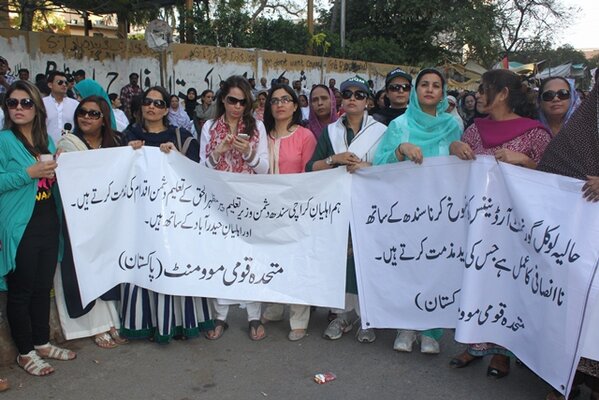 ہم اہلیان کراچی سندھ دشمن وزیر تعلیم پیر مظہر الحق کے تعلیم دشمن اقدام کی مذمت کرتے ہیں۔
اور اہلیان حیدرآباد کے ساتھ ہیں۔
متحدہ قومی موومنٹ (پاکستان)
حالیہ لوکل گورنمنٹ آرڈیننس کو منسوخ کرنا سندھ کے ساتھ
ناانصافی کا عمل ہے جس کی شدید مذمت کرتے ہیں۔
متحدہ قومی موومنٹ (پاکستان)